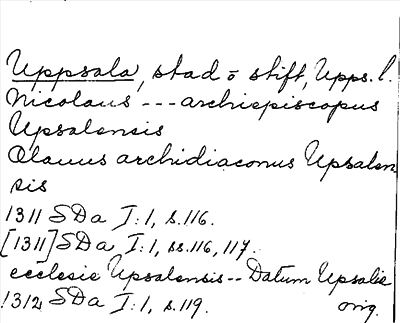 Uppsala, stad o stift, Upps. l.
Nicolaus --- archiepiscopus
Upsalensis
Olauus archidiaconus Upsalen
sis
1311 SDa I:1, s.116.
[1311] SDa I:1, ss.116, 117.
ecclesie Upsalensis -- Datum Upsalie
1312 SDa I:1, s.119. orig.